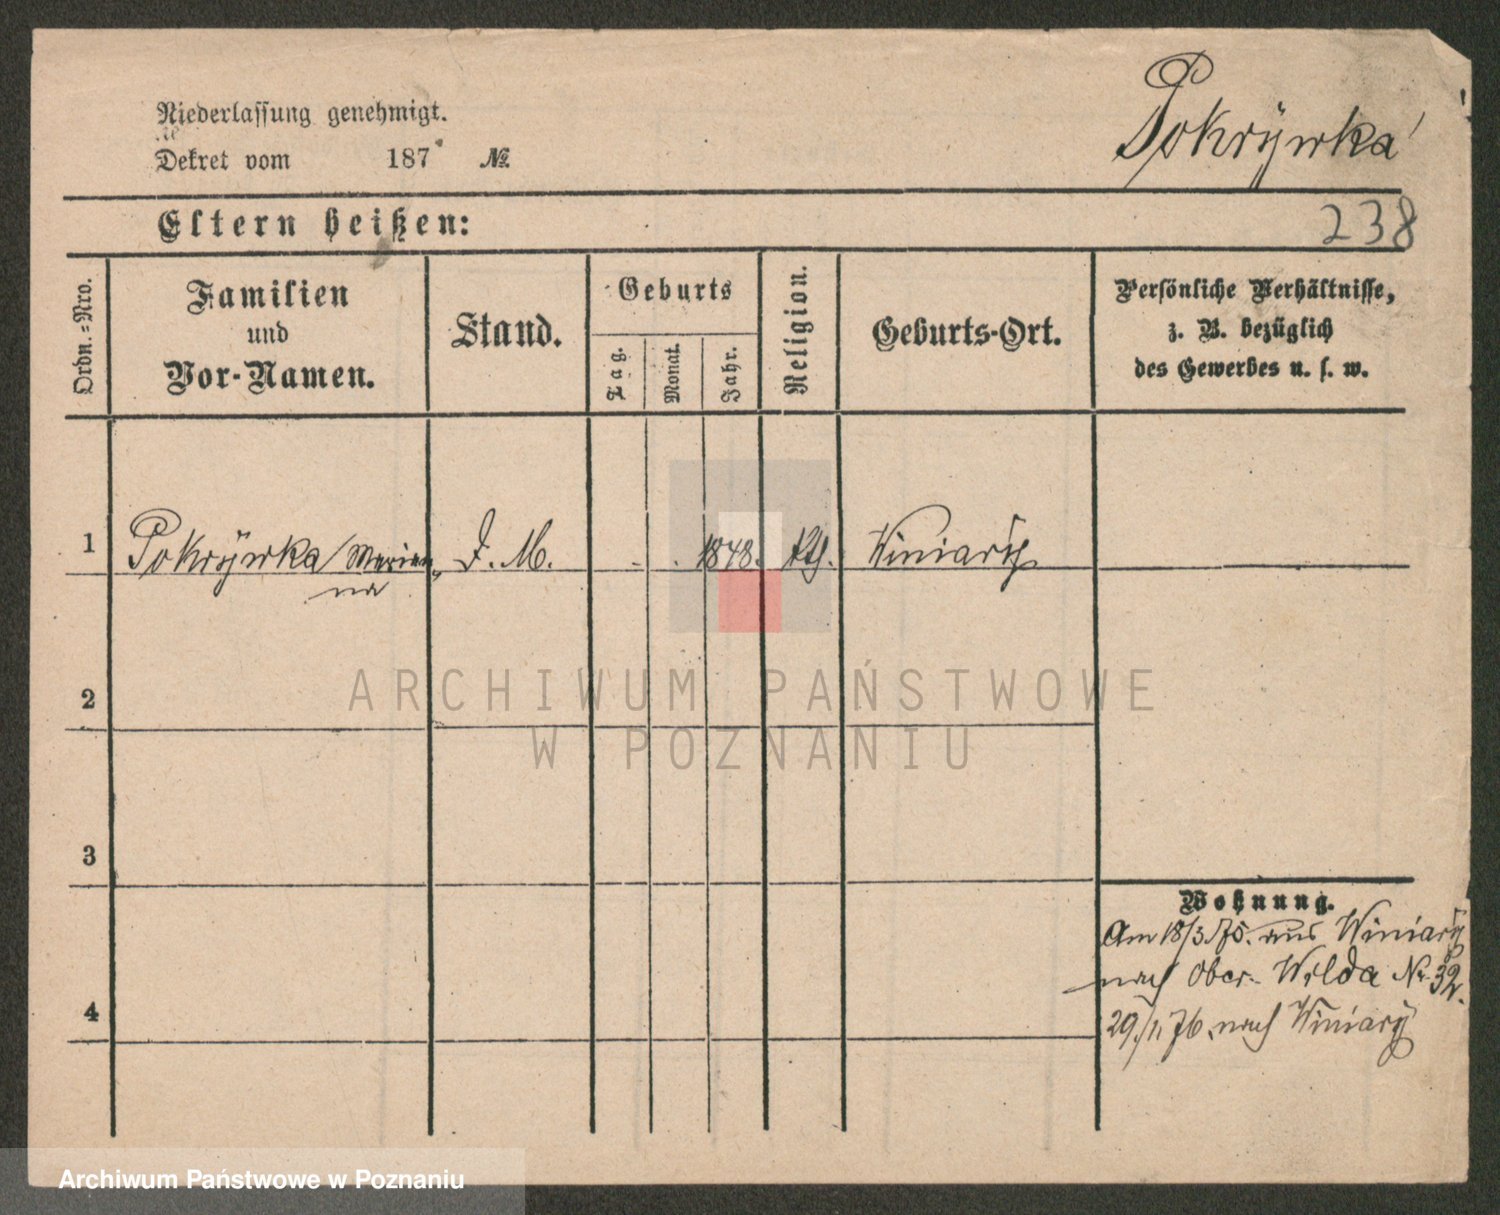 Niederlassung genehmigt.
Dekret vom 187 №
Pokrÿwka
Eltern heißen:
238
Ordn.=Nro.
Familien
und
Vor-Namen.
Stand.
Geburts
Tag.
Monat.
Jahr.
Religion.
Geburts-Ort.
Persönliche Verhältnisse,
z. B. bezüglich
des Gewerbes u. s. w.
1 Pokrÿwka Marian D. M. 1848. kth. Winiarÿ
na
2
ARCHIWUM PAŃSTWOWE
W POZNANIU
3
Wohnung.
Am 18/3.75. aus Winiarÿ
nach Ober-Wilda No 32.
4
29./1. 76. nach Winiarÿ
Archiwum Państwowe w Poznaniu